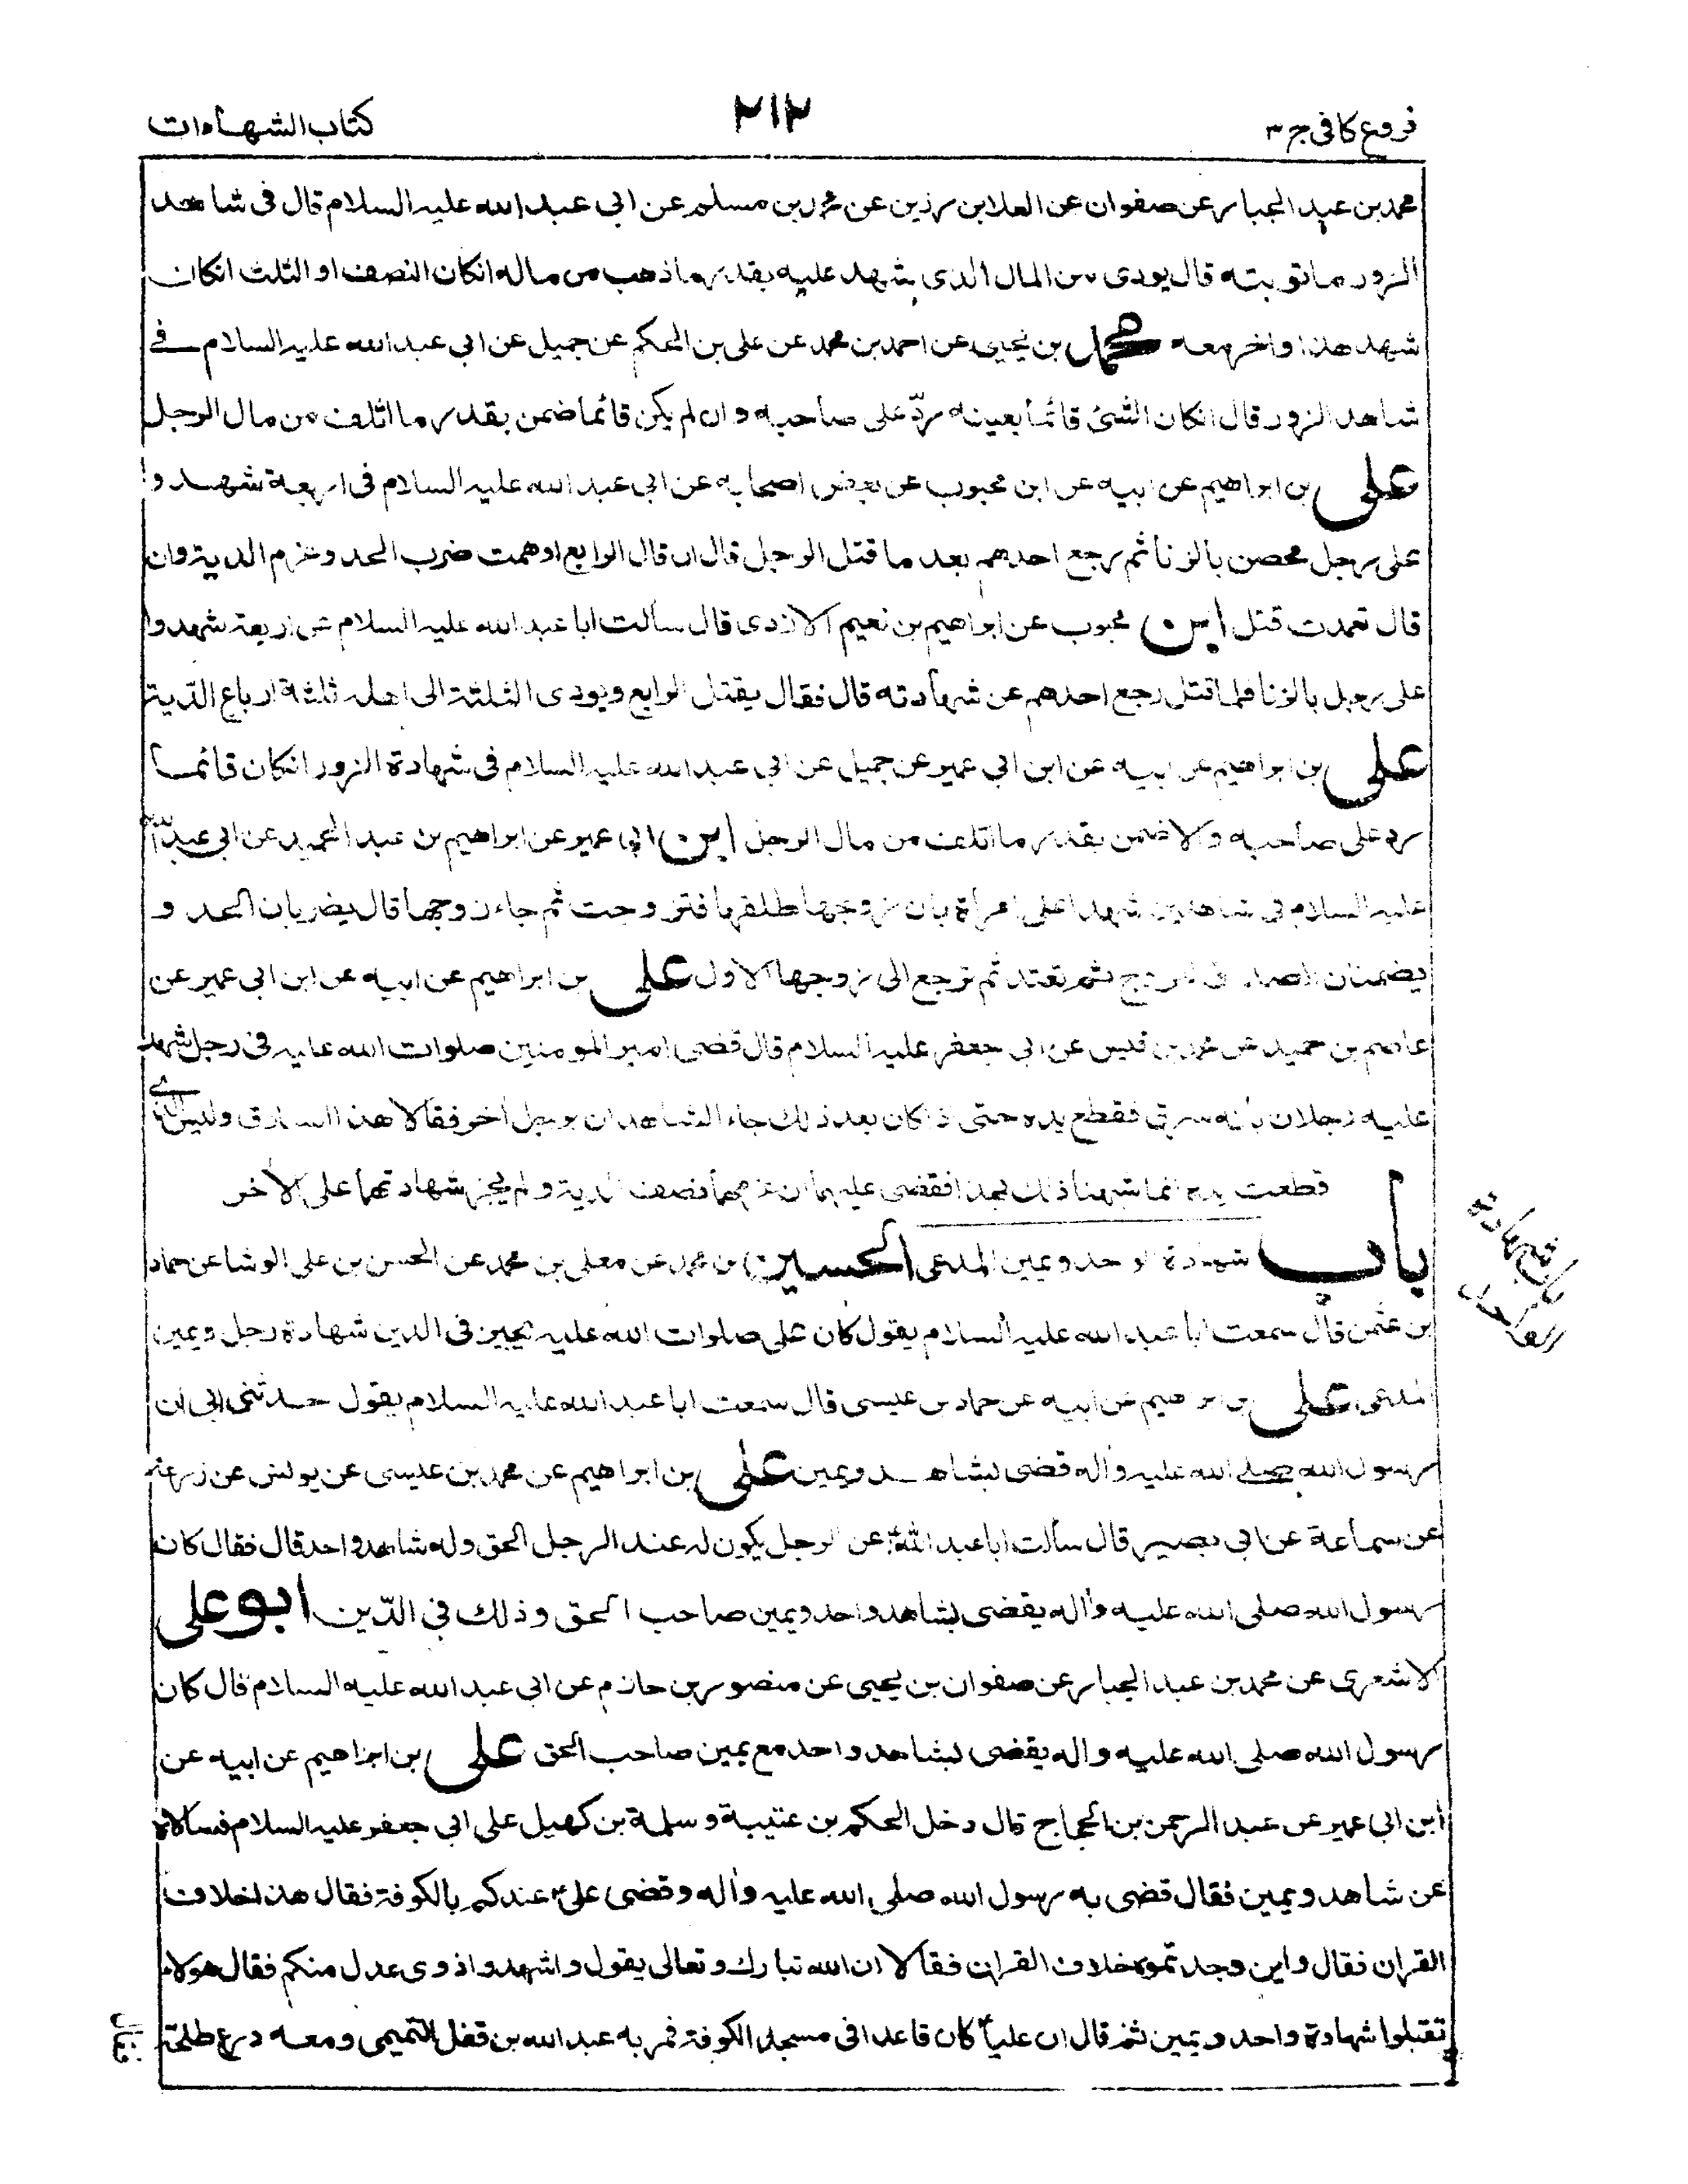 فروع كافى ج ٣
٢١٢
كتاب الشهادات
محمد بن عبد الجبار عن صفوان عن العلا بن رزين عن محمد بن مسلم عن ابى عبد الله عليه السلام قال فى شاهد
الزور ما توبته قال يودى من المال الذى شهد عليه بقدر ما ذهب من ماله انكان النصف او الثلث انكان
شهد هذا واخر معه محمد بن يحيى عن احمد بن محمد عن على بن الحكم عن جميل عن ابى عبد الله عليه السلام فے
شاهد الزور قال انكان الشئ قائما بعينه ردّ على صاحبه وان لم يكن قائما ضمن بقدر ما اتلف من مال الرجل
على بن ابراهيم عن ابيه عن ابن محبوب عن بعض اصحابه عن ابى عبد الله عليه السلام فى اربعة شهدوا
على رجل محصن بالزنا ثم رجع احدهم بعد ما قتل الرجل قال ان قال الرابع اوهمت ضرب الحد وغرم الدية وان
قال تعمدت قتل ابن محبوب عن ابراهيم بن نعيم الازدى قال سألت ابا عبد الله عليه السلام عن اربعة شهدوا
على رجل بالزنا فلما قتل رجع احدهم عن شهادته قال فقال يقتل الرابع ويودى الثلثة الى اهله ثلثة ارباع الدّية
على بن ابراهيم عن ابيه عن ابن ابى عمير عن جميل عن ابى عبد الله عليه السلام فى شهادة الزور انكان قائما
رد على صاحبه والا ضمن بقدر ما اتلف من مال الرجل ابن ابى عمير عن ابراهيم بن عبد الحميد عن ابى عبد الله
عليه السلام فى شاهدين شهدا على امرأة بان زوجها طلقها فتزوجت ثم جاء زوجها قال يضربان الحد و
يضمنان الصداق للزوج ثم تعتد ثم ترجع الى زوجها الاول على بن ابراهيم عن ابيه عن ابن ابى عمير عن
عاصم بن حميد عن محمد بن قيس عن ابى جعفر عليه السلام قال قضى امير المومنين صلوات الله عليه فى رجل شهد
عليه رجلان بانه سرق فقطع يده حتى اذا كان بعد ذلك جاء الشاهدان برجل أخر فقالا هذا السارق وليس الذے
قطعت يده انما شبهنا ذلك بهذا فقضى عليهما ان غرمهما نصف الدية ولم يجز شهادتهما على الأخر
باب شهادة الواحد ويمين المدعى الحسين بن محمد عن معلى بن محمد عن الحسن بن على الوشا عن حماد
باب شهادة
الواحد
بن عثمن قال سمعت ابا عبد الله عليه السلام يقول كان على صلوات الله عليه يجيز فى الدين شهادة رجل ويمين
المدعى على بن ابراهيم عن ابيه عن حماد بن عيسى قال سمعت ابا عبد الله عليه السلام يقول حدثنى ابى ان
رسول الله صلى الله عليه وأله قضى بشاهد ويمين على بن ابراهيم عن محمد بن عيسى عن يونس عن زرعة
عن سماعة عن ابى بصير قال سألت ابا عبد اللهؑ عن الرجل يكون له عند الرجل الحق وله شاهد واحد قال فقال كان
رسول الله صلى الله عليه وأله يقضى بشاهد واحد ويمين صاحب الحق وذلك فى الدّين ابو على
الاشعرى عن محمد بن عبد الجبار عن صفوان بن يحيى عن منصور بن حازم عن ابى عبد الله عليه السلام قال كان
رسول الله صلى الله عليه واله يقضى بشاهد واحد مع يمين صاحب الحق على بن ابراهيم عن ابيه عن
ابن ابى عمير عن عبد الرحمن بن الحجاج قال دخل الحكم بن عتيبة وسلمة بن كهيل على ابى جعفر عليه السلام فسألاه
عن شاهد ويمين فقال قضى به رسول الله صلى الله عليه وأله وقضى علىؑ عندكم بالكوفة فقال هذا خلاف
القران فقال واين وجدتموه خلاف القران فقالا ان الله تبارك وتعالى يقول واشهدوا ذوى عدل منكم فقال هو لا
تقبلوا شهادة واحد ويمين ثم قال ان علياؑ كان قاعدا فى مسجد الكوفة فمر به عبد الله بن قفل التميمى ومعه درع طلحة
فقال